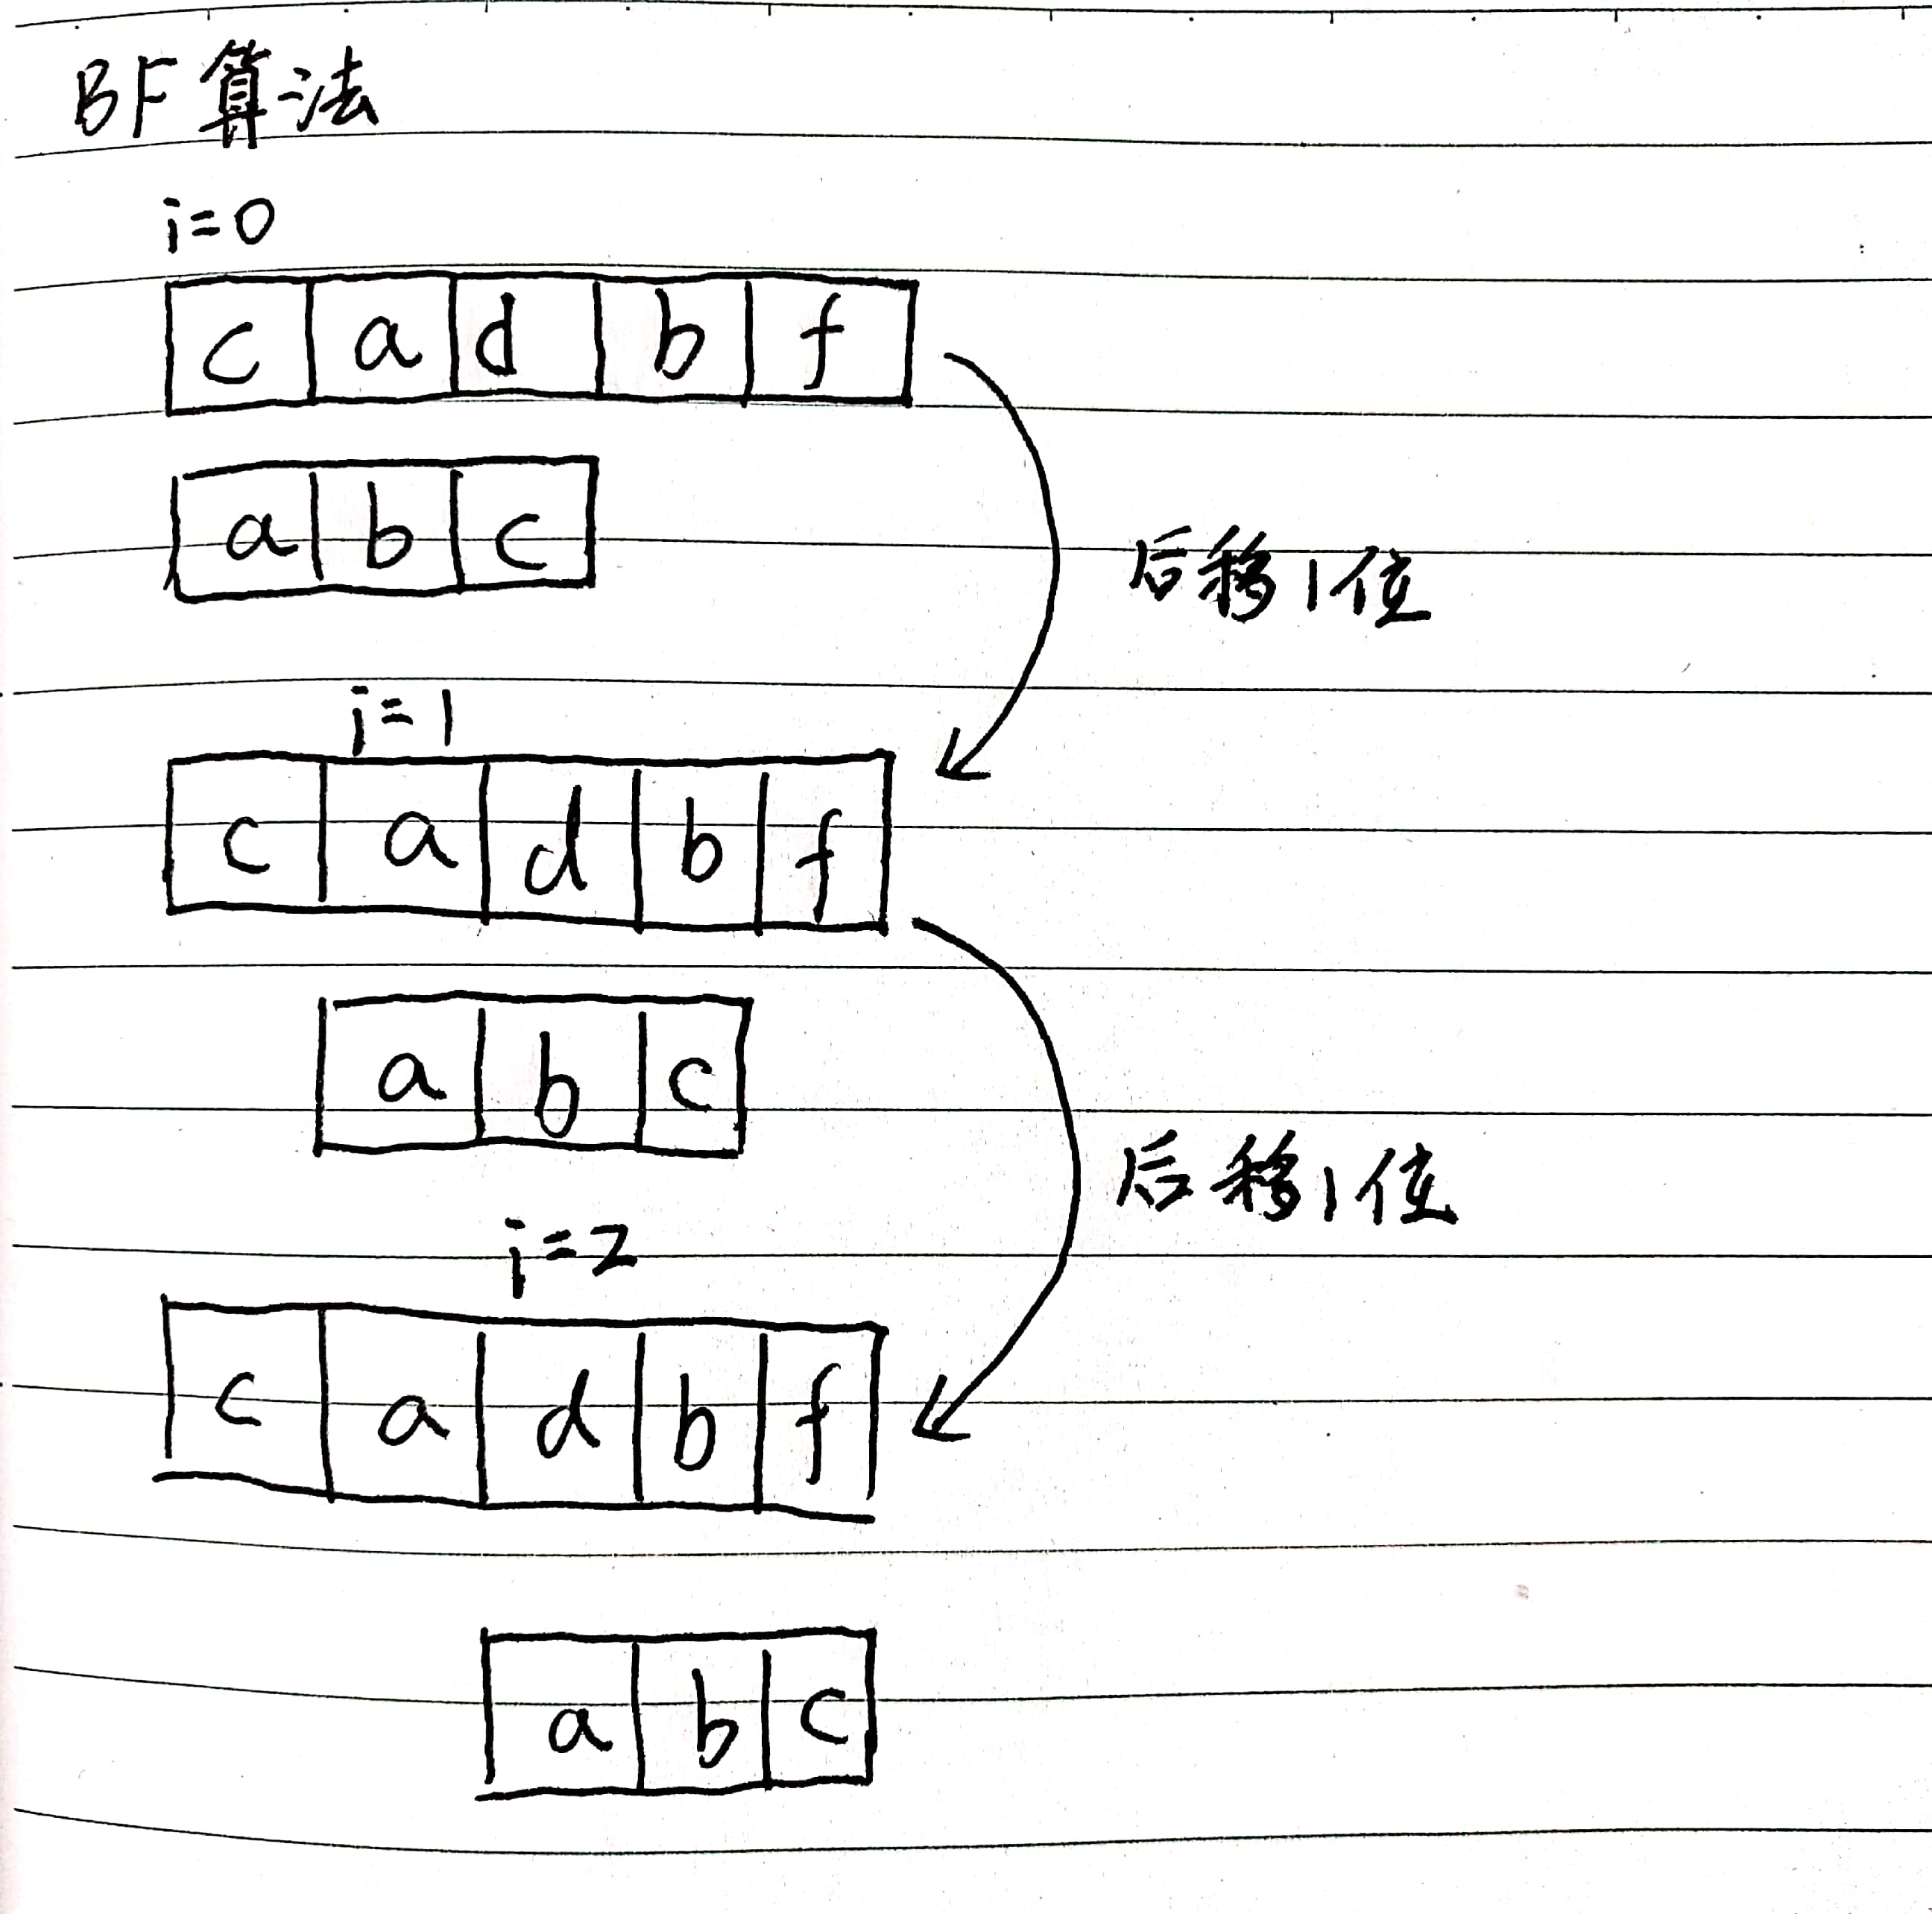 BF算法
i=0
c a d b f
a b c
后移1位
i=1
c a d b f
a b c
后移1位
i=2
c a d b f
a b c